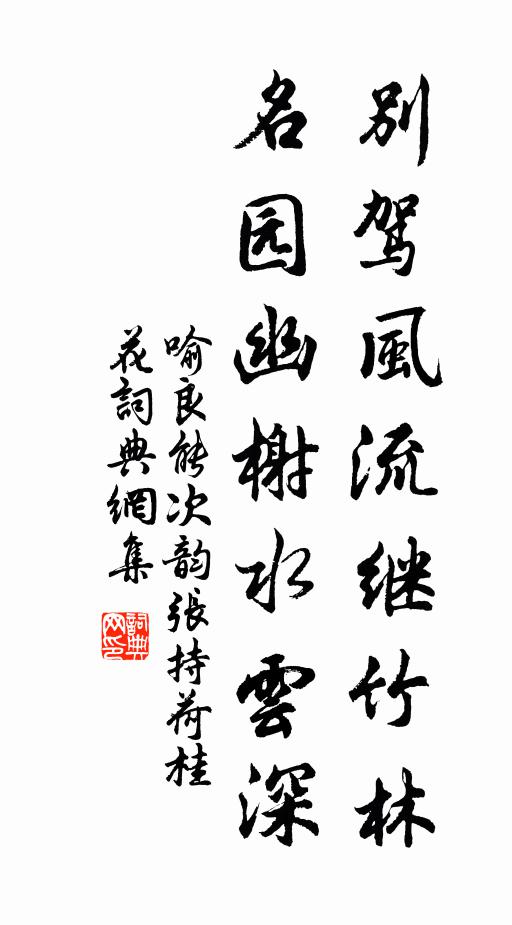 别驾風流继竹林
名园幽榭水雲深
喻良能次韵張持荷桂
花詞典網集
詞典网印